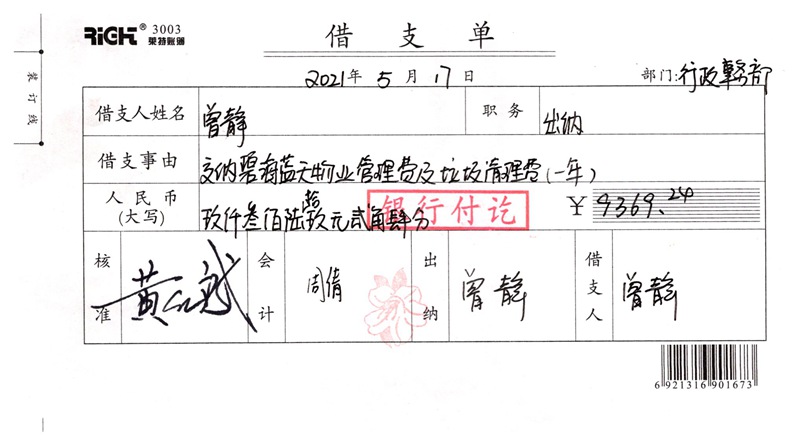 RiGHT® 3003
莱特账簿
借支单
2021年5月17日
部门:行政事务部
装订线
借支人姓名 曾静 职务 出纳
借支事由 交纳碧海蓝天物业管理费及垃圾清理费(一年)
人民币(大写) 玖仟叁佰陆拾玖元贰角肆分 ¥9369.24
银行付讫
核准 会计 周倩 出纳 曾静 借支人 曾静
6921316901673